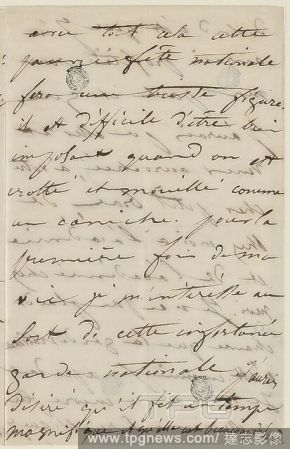 avec tout cela cette
fête nationale
fera une triste figure
il est difficile d'être bien
imposant quand on est
crotté et mouillé comme
un caniche. pour la
première fois de ma
vie je m'intéresse au
sort de cette importante
garde nationale j'aurais
désiré qu'il fit un temps
magnifique et qu'elle
www.tpgnews.com / 達志影像